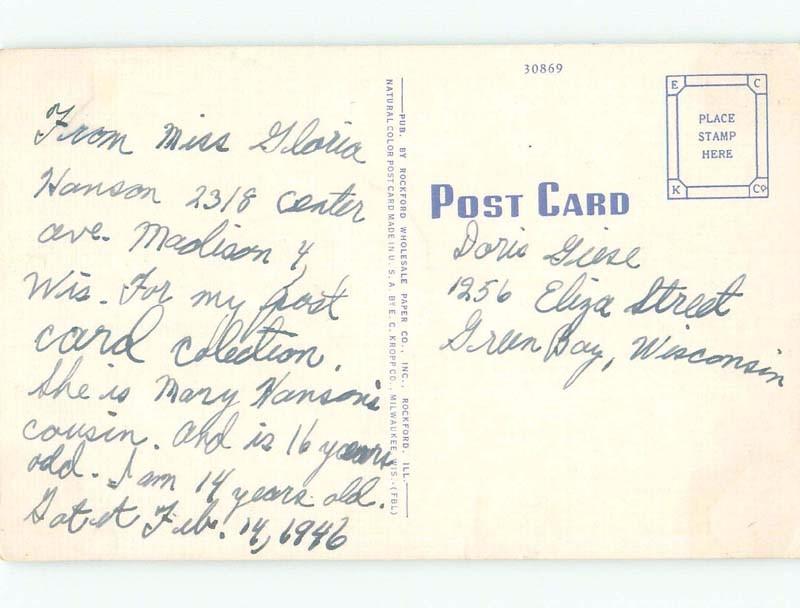 From Miss Gloria
Hanson 2318 center
ave. Madison 4,
Wis. For my post
card colection.
She is Mary Hanson's
cousin. And is 16 years
old. I am 14 years old.
Got it Feb. 14, 1946
PUB. BY ROCKFORD WHOLESALE PAPER CO., INC., ROCKFORD, ILL.
NATURAL COLOR POST CARD MADE IN U.S.A. BY E. C. KROPP CO., MILWAUKEE, WIS.-(FBL)
30869
E C
PLACE
STAMP
HERE
K Co
POST CARD
Doris Giese
1256 Eliza Street
Green Bay, Wisconsin